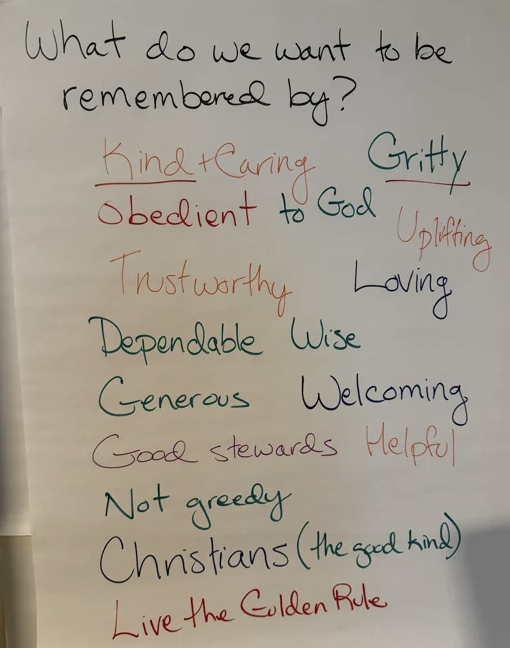 What do we want to be
remembered by?
Kind + Caring Gritty
Obedient to God
Uplifting
Trustworthy Loving
Dependable Wise
Generous Welcoming
Good stewards Helpful
Not greedy
Christians (the good kind)
Live the Golden Rule